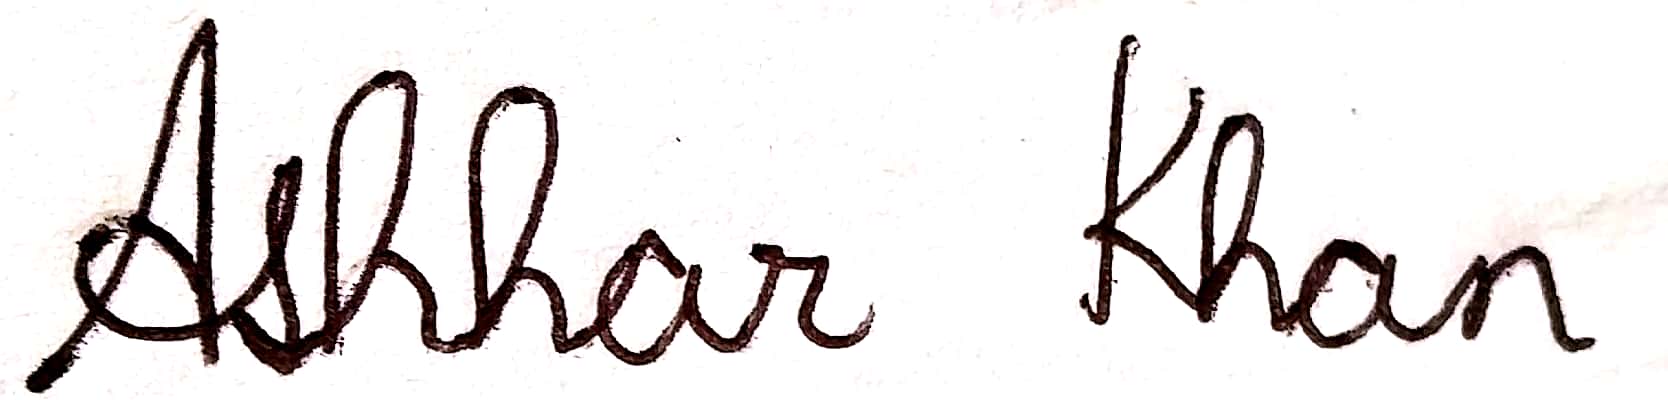 Ashhar Khan